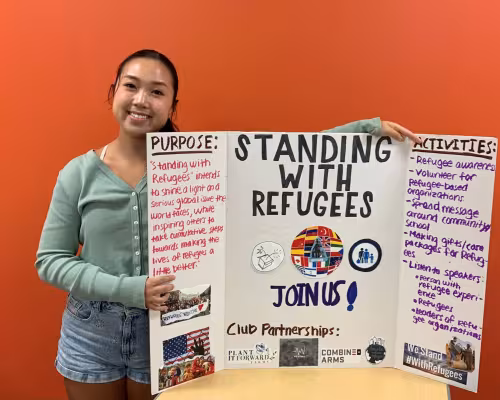 PURPOSE:
"Standing with
Refugees" intends
to shine a light on a
serious global issue the
world faces, while
inspiring others to
take cumulative steps
towards making the
lives of refugees a
little better."
STANDING
WITH
REFUGEES
JOIN US!
Club Partnerships:
PLANT
IT FORWARD
COMBINED
ARMS
ACTIVITIES:
- Refugee awareness
- Volunteer for
refugee-based
organizations
- Spread message
around community/
school
- Making gifts/care
packages for Refug-
ees
- Listen to speakers:
• Person with
refugee experi-
ence
• Refugees
• leaders of Refu-
gee organizations
We Stand
#WithRefugees